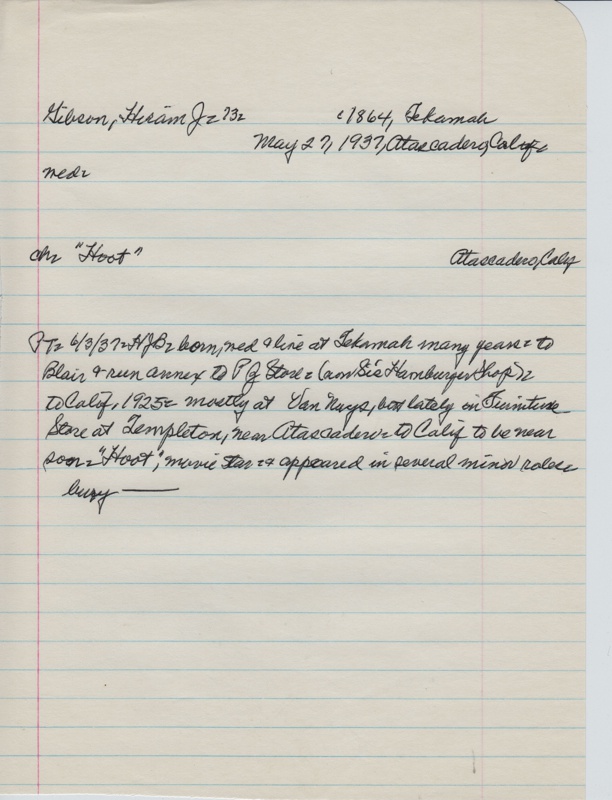 Gibson, Hiram J= 73= c1864, Tekamah
May 27, 1937, Atascadero, Calif=
med=
ch= "Hoot" Atascadero, Calif
PT= 6/3/37= HJG= born, med & live at Tekamah many years= to
Blair & run annex to P J Store= (now Sis Hamburger Shop)=
to Calif, 1925= mostly at Van Nuys, but lately in Furniture
Store at Templeton, near Atascadero= to Calif to be near
son= "Hoot", movie star= & appeared in several minor roles=
bury —